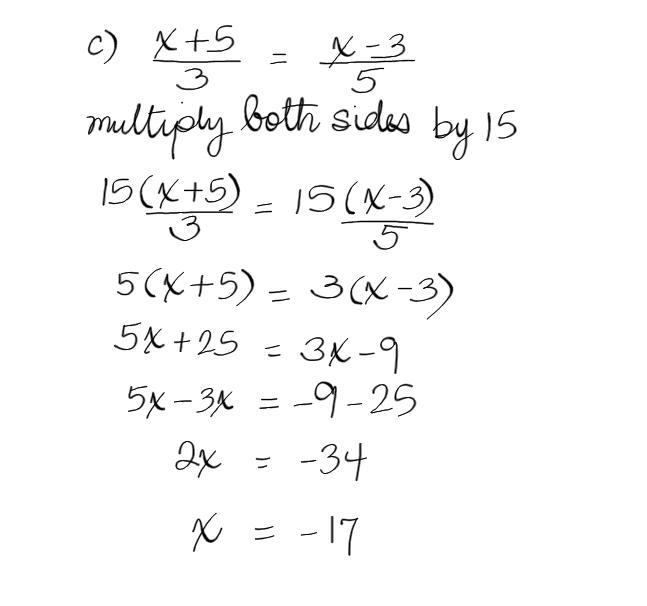 c) x+5/3 = x-3/5
multiply both sides by 15
15(x+5)/3 = 15(x-3)/5
5(x+5) = 3(x-3)
5x+25 = 3x-9
5x-3x = -9-25
2x = -34
x = -17